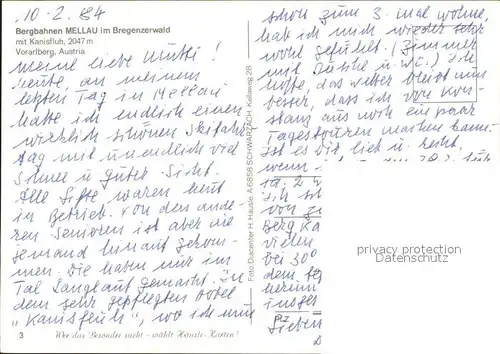 10.2.84
Bergbahnen MELLAU im Bregenzerwald
mit Kanisfluh, 2047 m
Vorarlberg, Austria
Meine liebe Mutti!
heute, an meinem
letzten Tag in Mellau
habe ich endlich einen
wirklich schönen Skifahr
tag mit unendlich viel
Schnee u guter Sicht.
Alle Lifte waren heut
in Betrieb. Von den ande
ren Senioren ist aber nie
jemand hinauf gekom-
men. Die haben nur im
Tal Langlauf gemacht. In
dem sehr gepflegten Hotel
"Kanisfluh", wo ich nun
3
Wer das Besondere sucht - wählt Häusle-Karten!
Foto Duocenter H. Häusle, A 6858 SCHWARZACH, Kellaweg 28
schon zum 3. mal wohne,
hab ich mich wieder sehr
wohl gefühlt. (Zimmer
mit Dusche u. W.C.) Ich
hoffe, das wetter bleibt nun
besser, dass ich von Kon-
stanz aus noch ein paar
Tagestouren machen kann
ist es dir lieb u. recht,
wenn
ca. 2
Ich
von
berg Ka
vielen
bei 30°
dem
herum
insges
PLZ
Sieben
privacy protection
Datenschutz